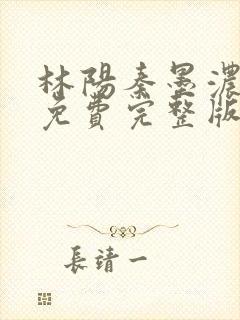 林陽秦墨濃
免費完整版
長靖一